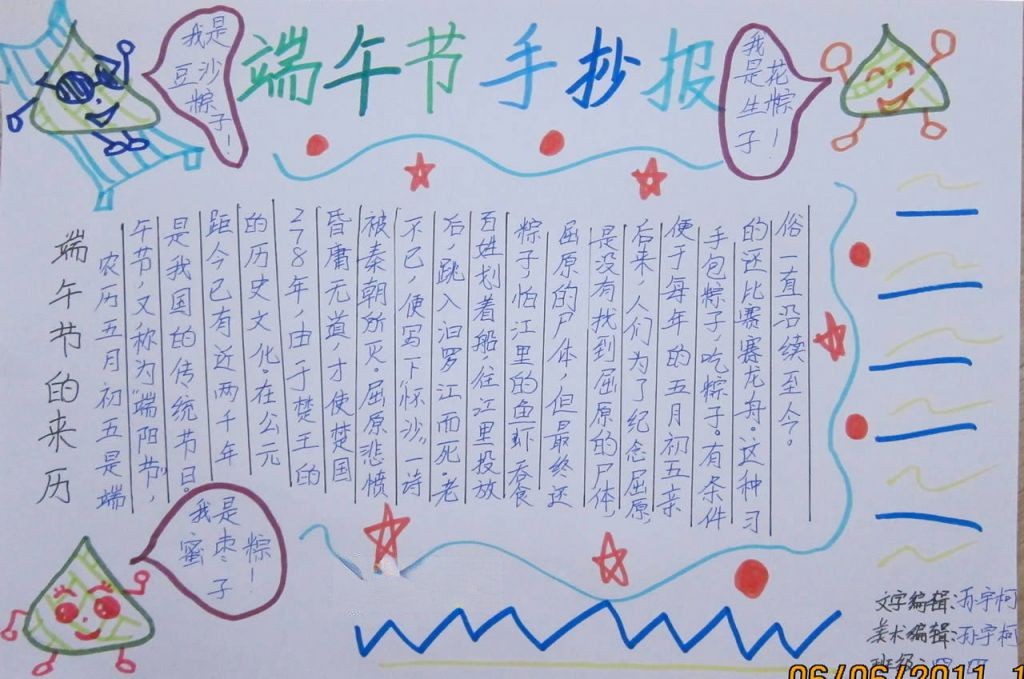 端午节手抄报
我是
豆沙
粽子!
我
是花
生粽
子!
端午节的来历
农历五月初五是端
午节,又称为"端阳节",
是我国的传统节日。
距今已有近两千年
的历史文化。在公元
278年,由于楚王的
昏庸无道,才使楚国
被秦朝所灭。屈原悲愤
不已,便写下怀沙"一诗
后,跳入汨罗江而死。老
百姓划着船往江里投放
粽子怕江里的鱼虾吞食
屈原的尸体,但最终还
是没有找到屈原的尸体,
后来,人们为了纪念屈原,
便于每年的五月初五亲
手包粽子,吃粽子。有条件
的还比赛赛龙舟。这种习
俗一直沿续至今。
我是
蜜枣粽!
子
文字编辑:孙宇柯
美术编辑:孙宇柯
班级:四.四
06/06/2011